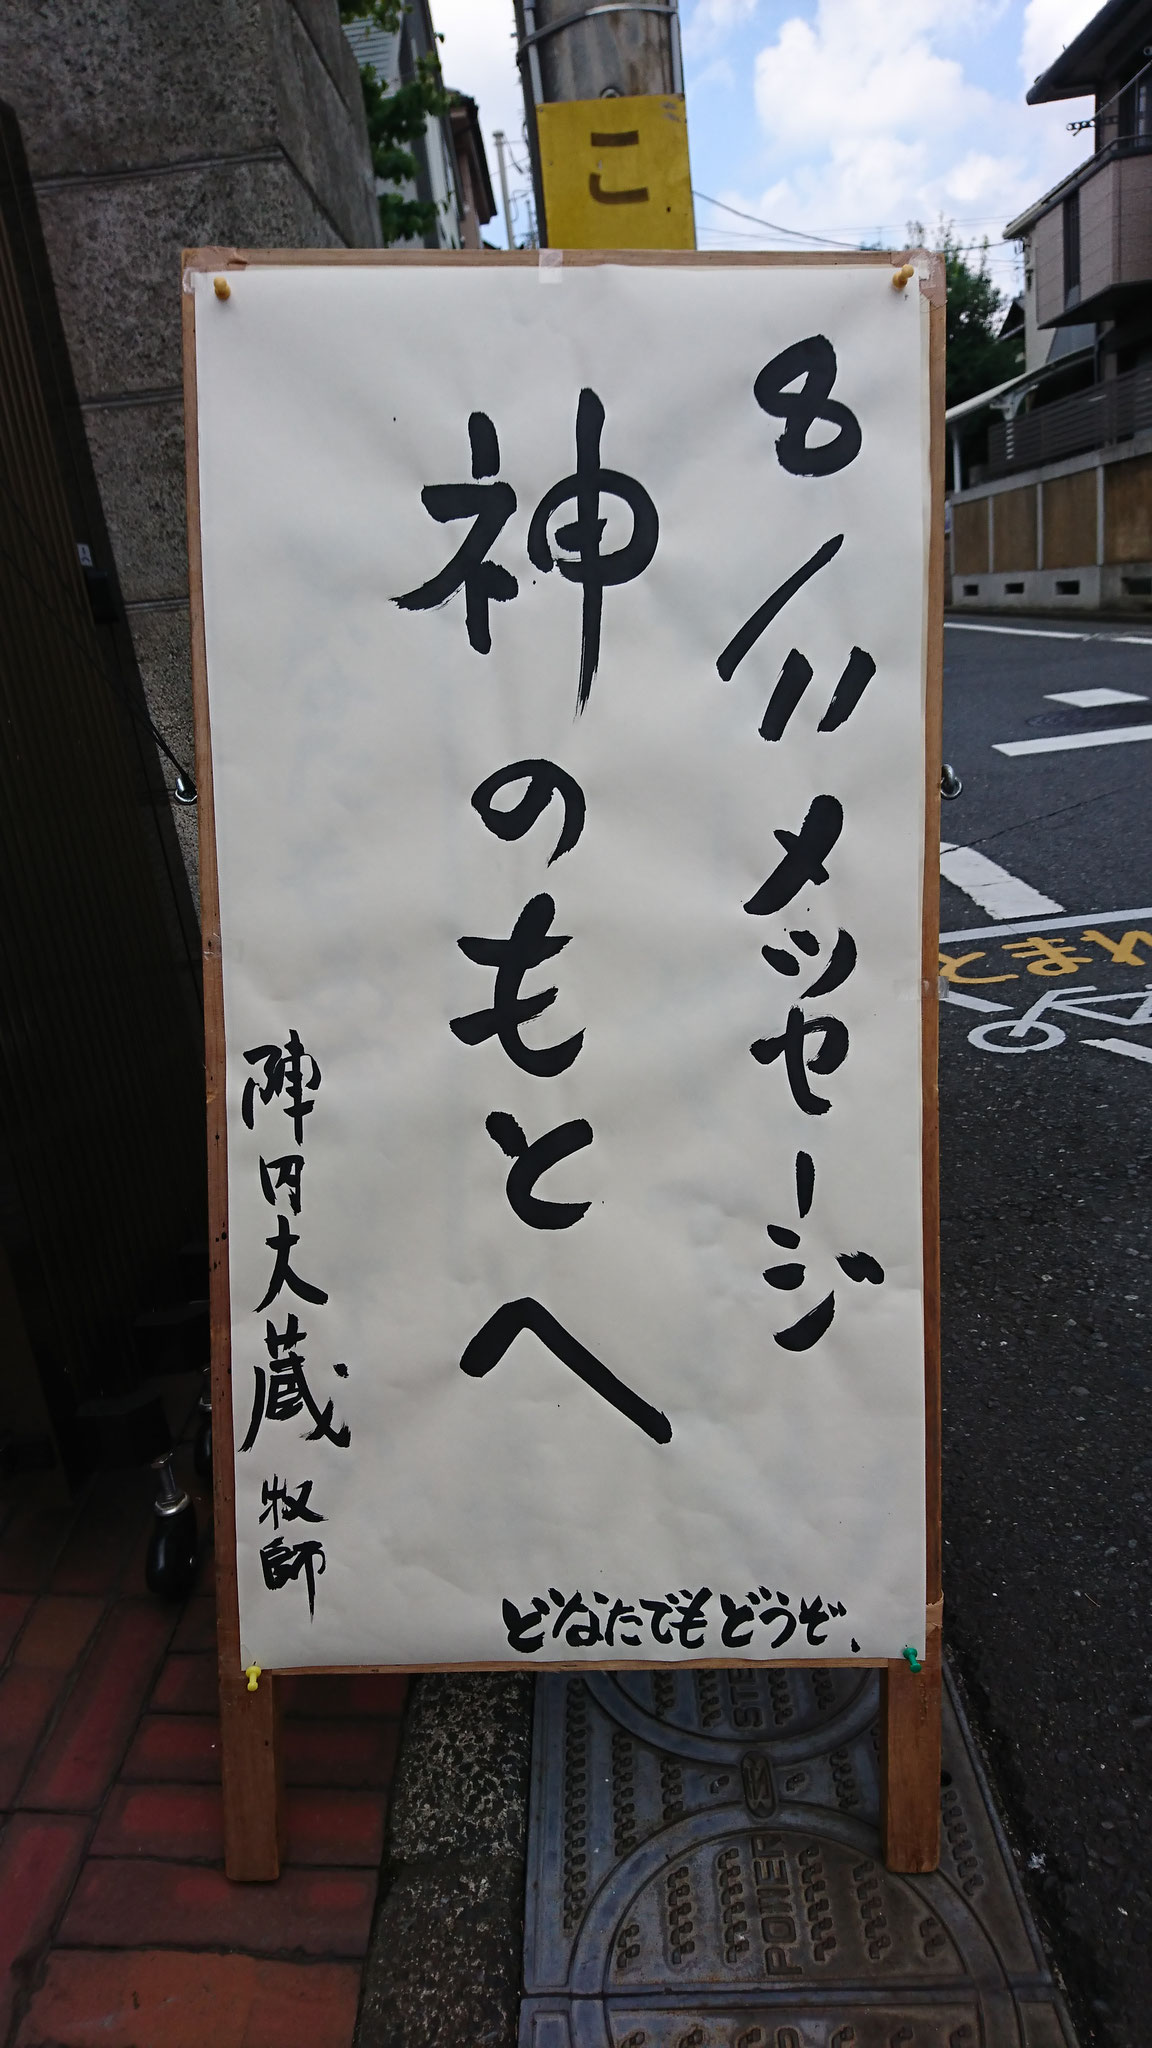 こ
8/11メッセージ
神のもとへ
陣内大蔵 牧師
どなたでもどうぞ、
とまれ
POWER